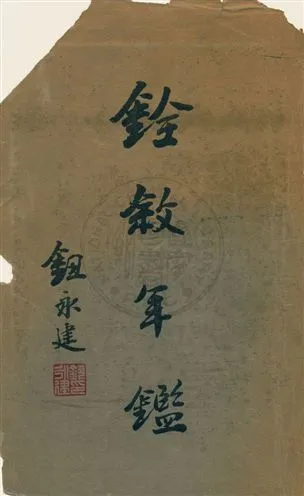 銓敘年鑑
鈕永建